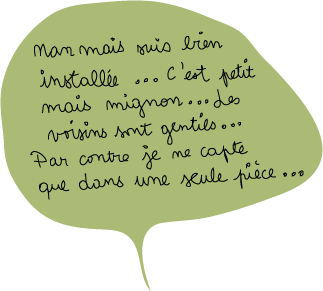 Nan mais suis bien
installée ... C'est petit
mais mignon... Les
voisins sont gentils...
Par contre je ne capte
que dans une seule pièce...